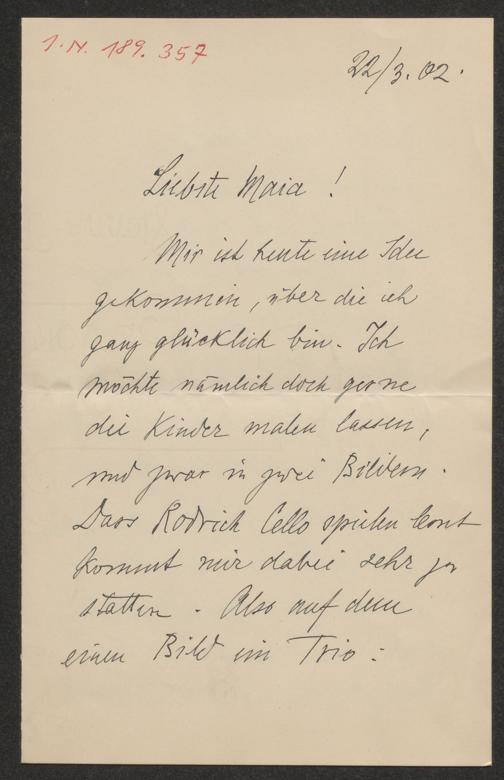 I.N. 189.357
22/3. 02.
Liebste Maia!
Mir ist heute eine Idee
gekommen, über die ich
ganz glücklich bin. Ich
möchte nämlich doch gerne
die Kinder malen lassen,
und zwar in zwei Bildern.
Dass Rodrich Cello spielen lernt
kommt mir dabei sehr zu
statten. Also auf dem
einen Bild ein Trio: